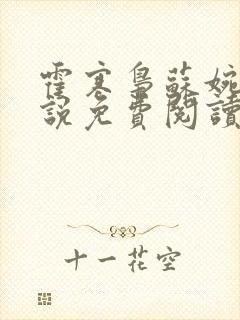 霍寒梟蘇婉
說免費閱讀
十一花空